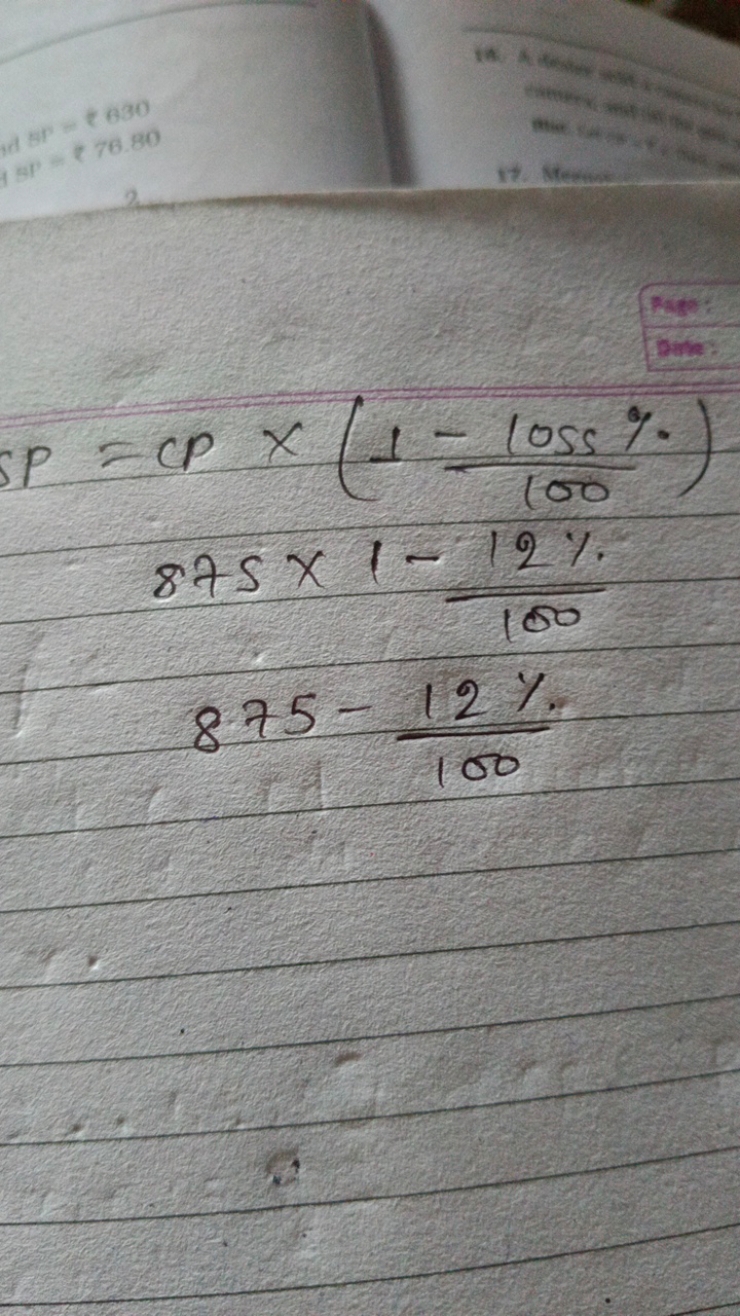 nd SP = ₹ 630
d SP = ₹ 76.80
16. A dealer
17.
Page :
Date :
SP = CP × (1 - loss % / 100)
875 × 1 - 12 % / 100
875 - 12 % / 100